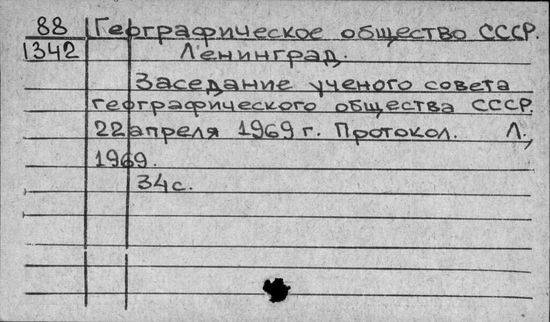 88 Географическое общество СССР.
1342 Ленинград.
Заседание ученого совета
географического общества СССР.
22 апреля 1969 г. Протокол. Л.,
1969.
34 с.